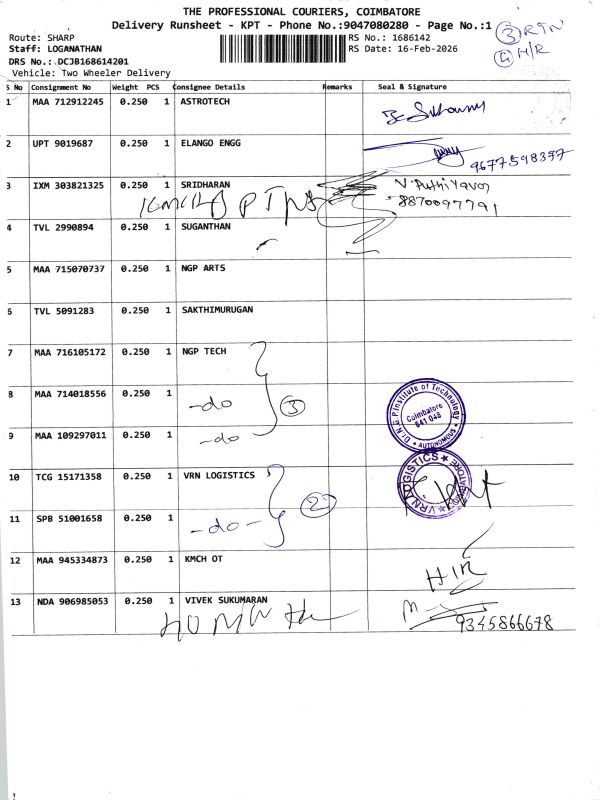 THE PROFESSIONAL COURIERS, COIMBATORE
Delivery Runsheet - KPT - Phone No.:9047080280 - Page No.:1
③ RTN
④ H/R
Route: SHARP
RS No.: 1686142
Staff: LOGANATHAN
RS Date: 16-Feb-2026
DRS No.: DCJB168614201
Vehicle: Two Wheeler Delivery
S No Consignment No Weight PCS Consignee Details Remarks Seal & Signature
1 MAA 712912245 0.250 1 ASTROTECH
2 UPT 9019687 0.250 1 ELANGO ENGG
9677598377
3 IXM 303821325 0.250 1 SRIDHARAN
8870097791
4 TVL 2990894 0.250 1 SUGANTHAN
5 MAA 715070737 0.250 1 NGP ARTS
6 TVL 5091283 0.250 1 SAKTHIMURUGAN
7 MAA 716105172 0.250 1 NGP TECH
8 MAA 714018556 0.250 1
-do ③
9 MAA 109297011 0.250 1 -do
Dr. N.G.P. Institute of Technology
Coimbatore
641 048
AUTONOMOUS
10 TCG 15171358 0.250 1 VRN LOGISTICS
VRN LOGISTICS
COIMBATORE
11 SPB 51001658 0.250 1
-do- ②
12 MAA 945334873 0.250 1 KMCH OT
H/R
13 NDA 906985053 0.250 1 VIVEK SUKUMARAN
9345866678